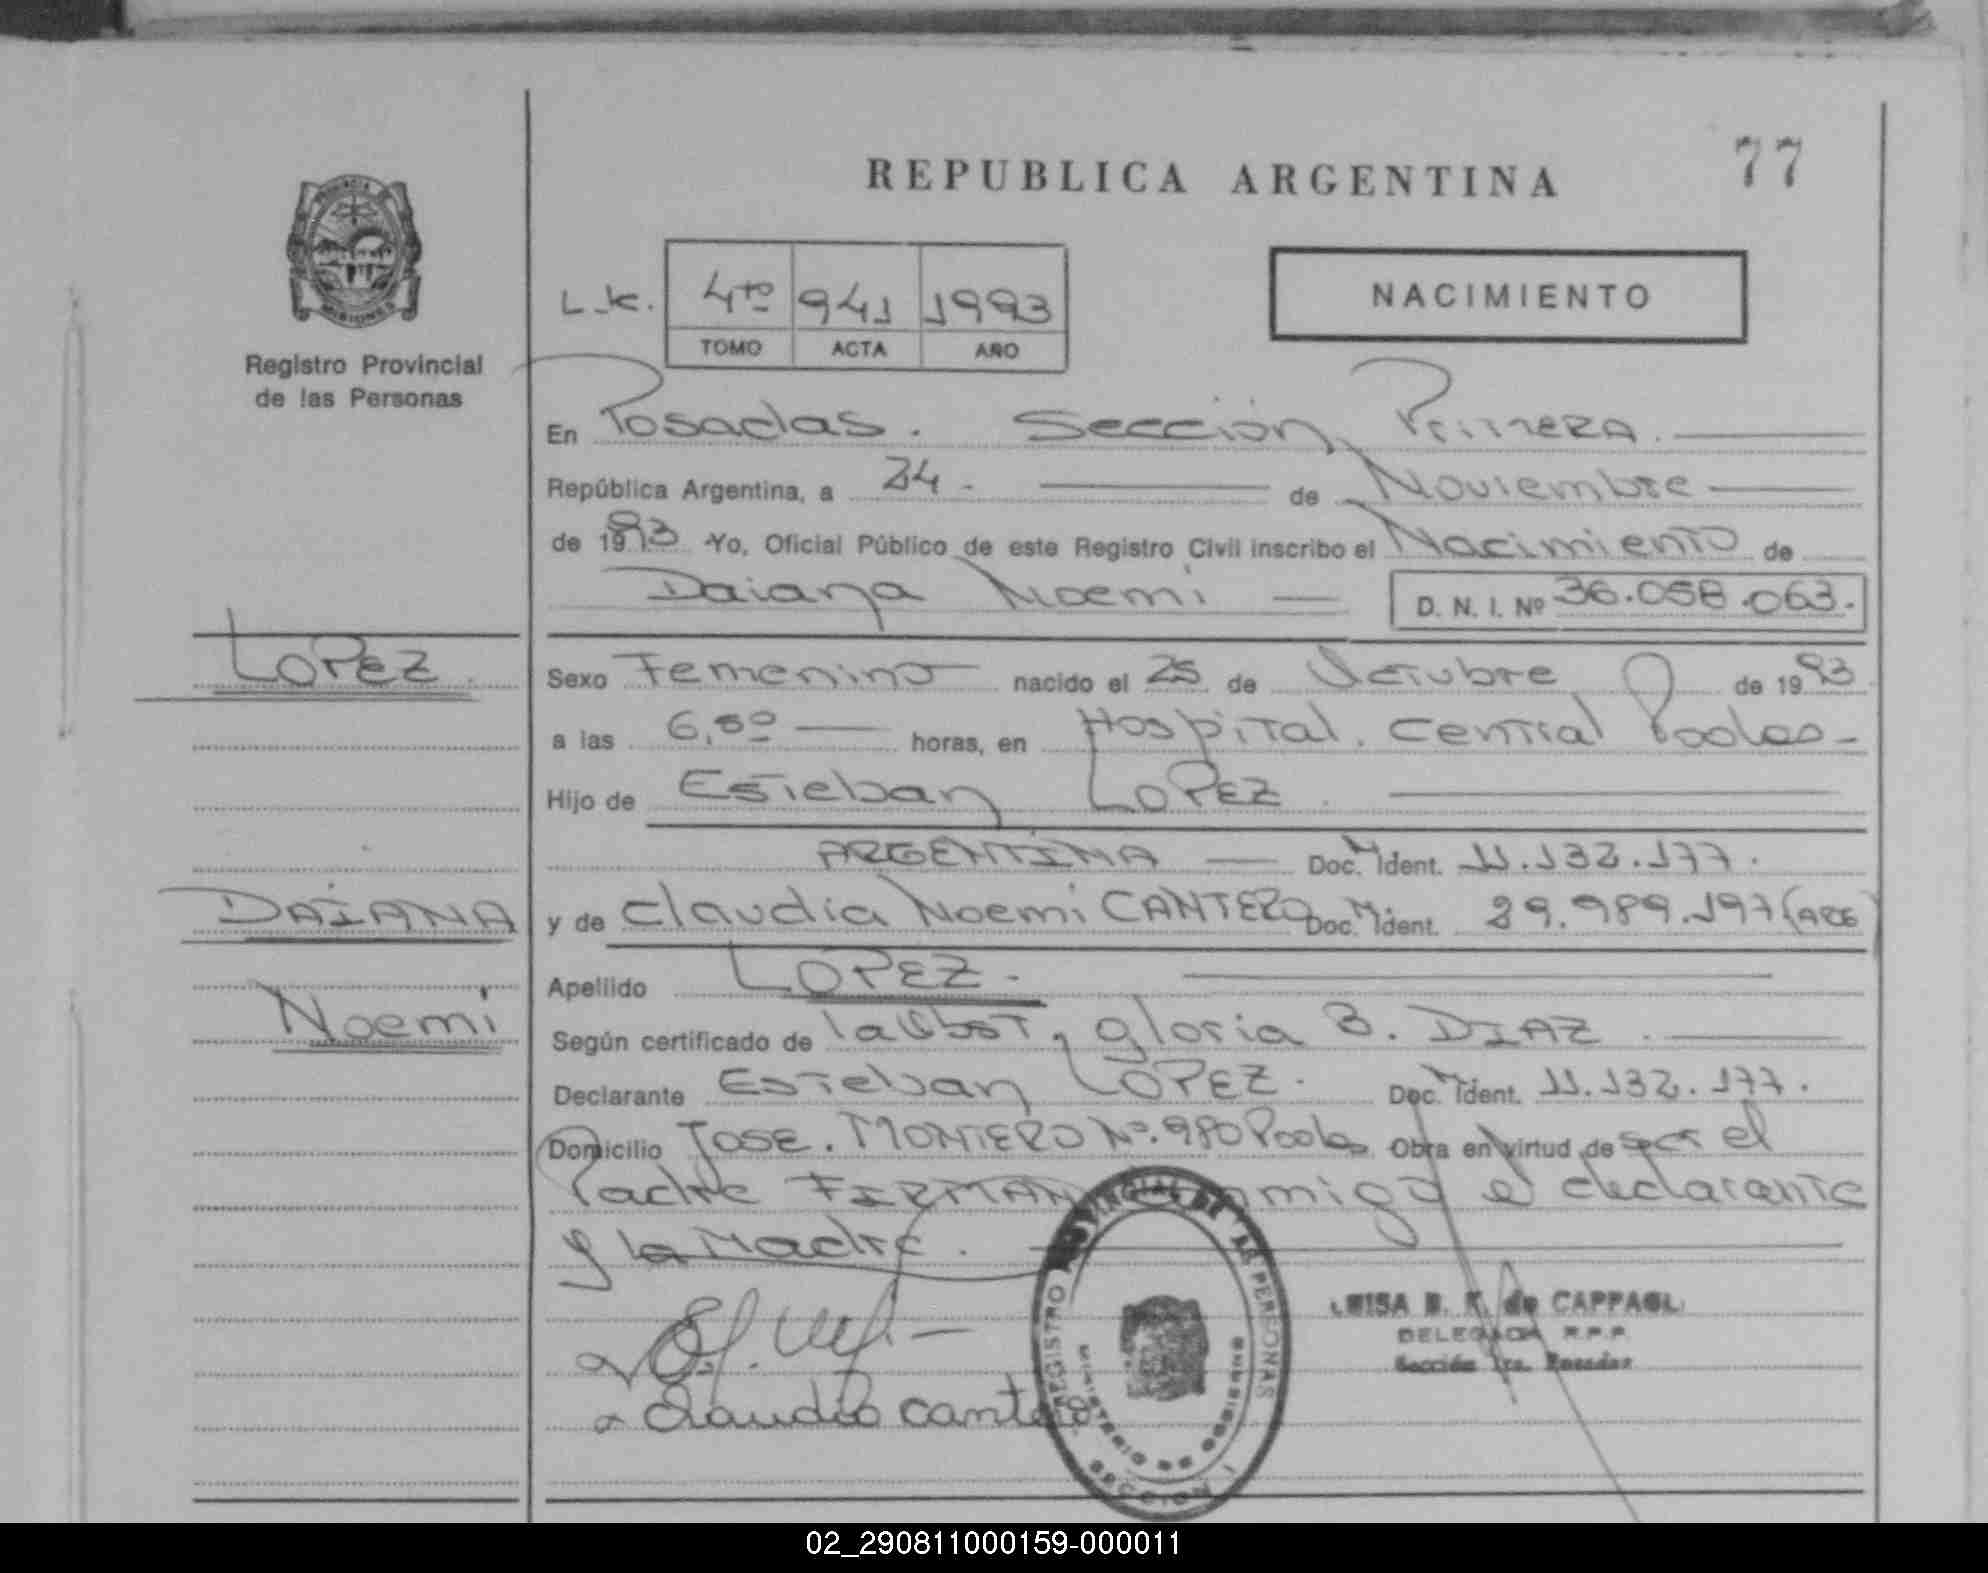 REPUBLICA ARGENTINA
77
PROVINCIA
MISIONES
Registro Provincial
de las Personas
L.K.
4to 941 1993
TOMO ACTA AÑO
NACIMIENTO
En Posadas. Sección, Primera.
República Argentina, a 24. de Noviembre
de 1993 Yo, Oficial Público de este Registro Civil inscribo el Nacimiento de
Daiana Noemi D. N. I. Nº 36.058.063.
LOPEZ.
Sexo Femenino nacido el 25 de Octubre de 1993
a las 6,50 horas, en Hospital. Central Pdas
Hijo de Esteban LOPEZ.
ARGENTINA Doc. Ident. 11.132.177.
DAIANA
y de Claudia Noemi CANTERO Doc. Ident. 29.989.197 (ARG
Apellido LOPEZ.
Noemi
Según certificado de la Obst, Gloria B. DIAZ.
Declarante Esteban LOPEZ. Doc. Ident. 11.132.177.
Domicilio JOSE. MONTERO Nº.980 Pdas Obra en virtud de ser el
Padre FIRMAN conmigo el declarante
y la Madre.
REGISTRO PROVINCIAL DE LAS PERSONAS
MINISTERIO DE GOBIERNO
SECCION I
DE CAPPAGLI
DELEGADA R.P.P.
Sección 1ra. Posadas
Claudia Cantero
02_290811000159-000011